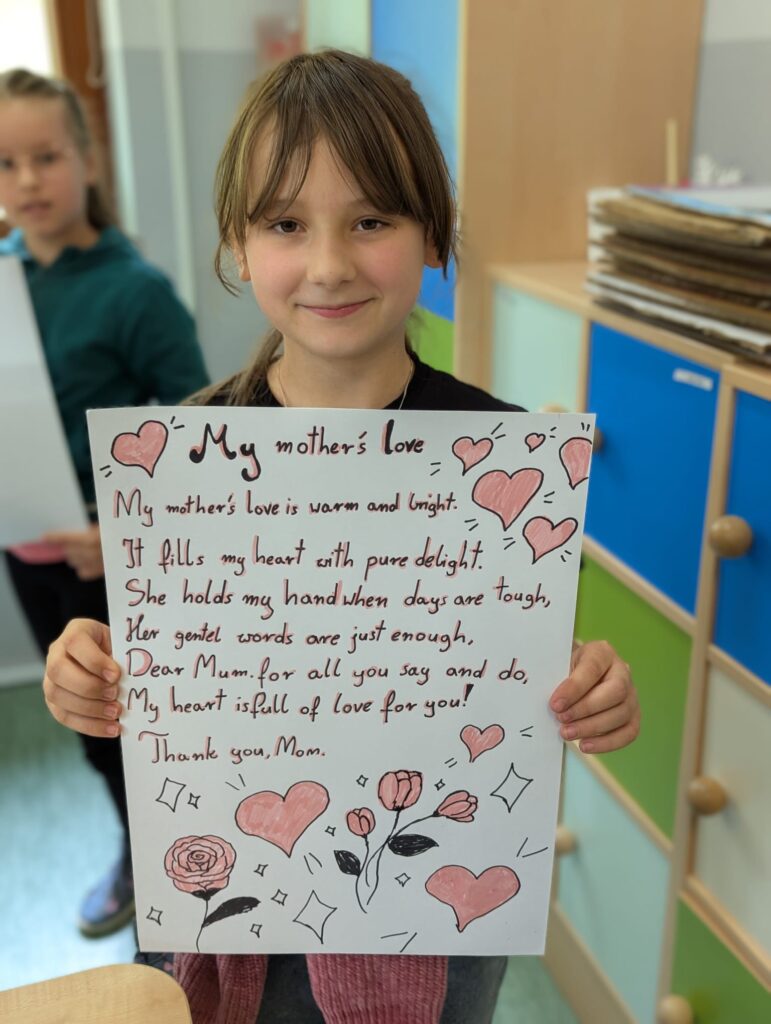 My mother's love
My mother's love is warm and bright.
It fills my heart with pure delight.
She holds my hand when days are tough,
Her gentel words are just enough,
Dear Mum. for all you say and do,
My heart is full of love for you!
Thank you, Mom.